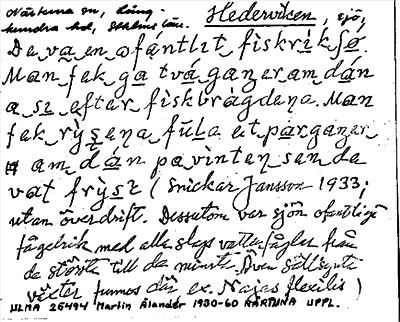 Närtuna sn, Lång-
hundra hd, Sthlms län.
Hederviken, sjö;
De va en ofántlit fiskrik sø.
Man fek ga två gaŋeram dán
a se efter fiskbrägdeṇa. Man
fek rýseṇa fula et par gaŋer
am dán pa vinteṇ sen de
vat frýst (Snickar Jansson 1933;
utan överdrift. Dessutom var sjön ofantligt
fågelrik med alla slags vattenfåglar från
de största till de minsta. Även sällsynta
växter funnos där ex. Najas flexilis)
ULMA 25494 Martin Ålander 1930-60 NÄRTUNA UPPL.